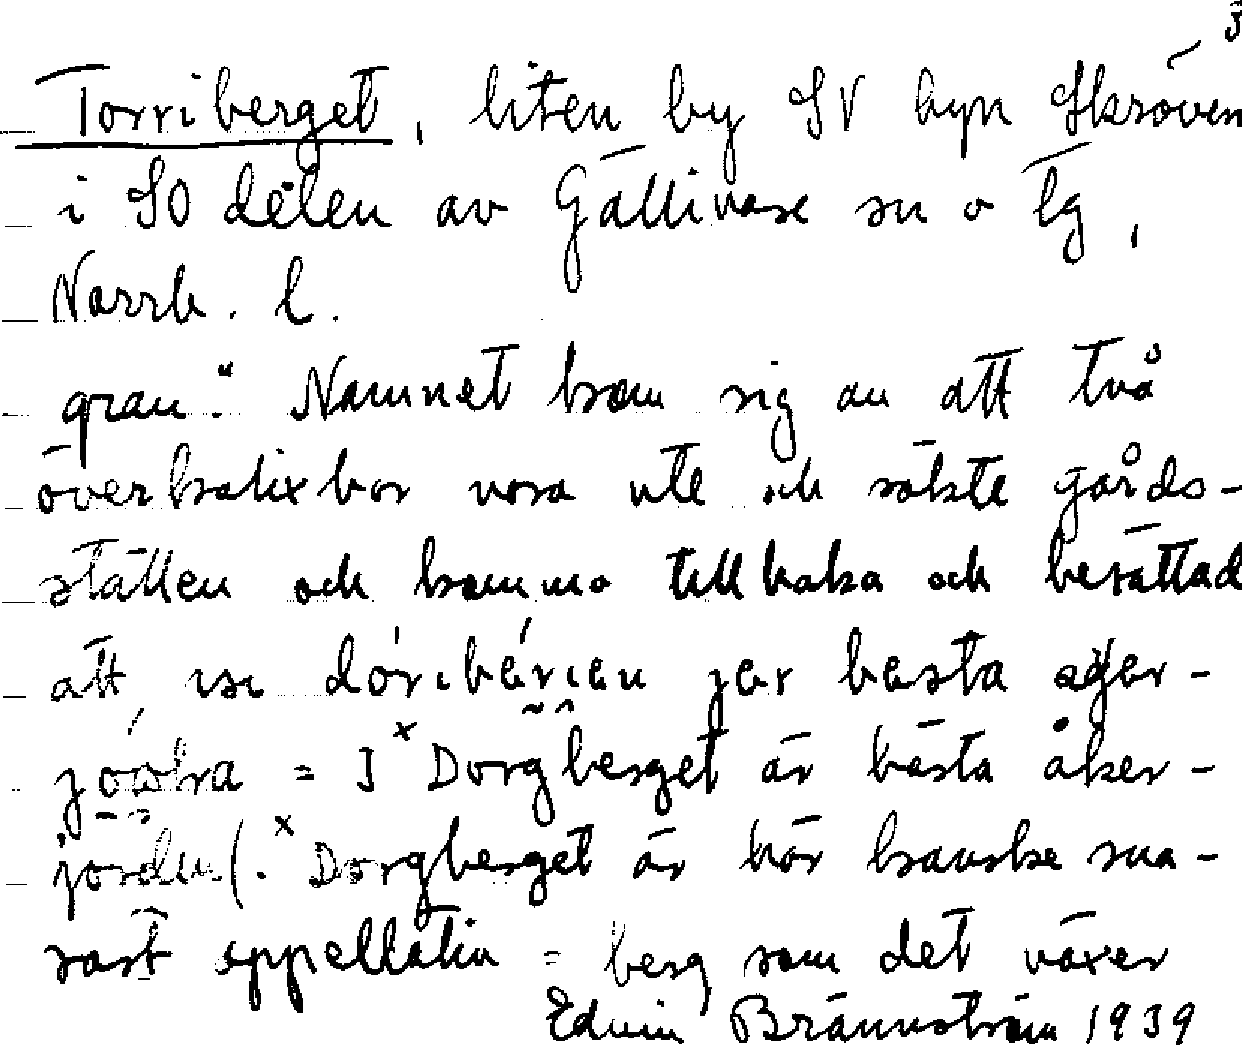 3
Torriberget, liten by SV byn Skröven
i SO delen av Gällivare sn o lg,
Norrb. l.
gran." Namnet kom sig av att två
överkalixbor vora ute och sökte gårds-
ställen och kommo tillbaka och berättad
att dóribérjen jer besta ager-
jóəɖa = I ˣDorgberget är bästa åker-
jorden(. ˣDorgberget är här kanske sna-
rast appellativ = berg som det växer
Edvin Brännström 1939